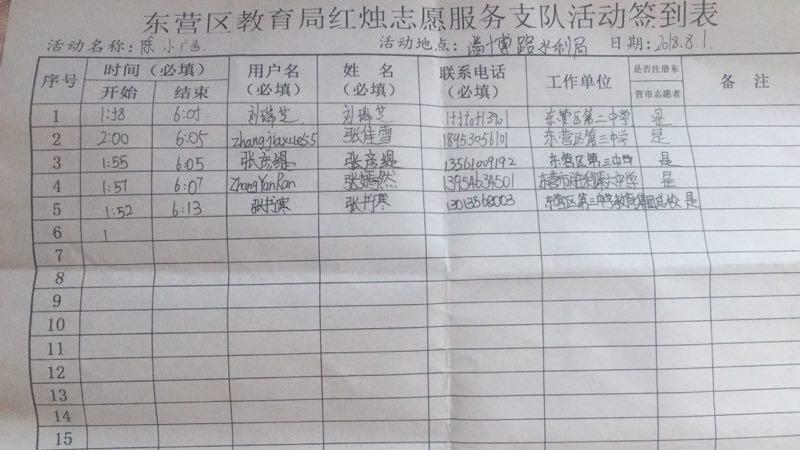 东营区教育局红烛志愿服务支队活动签到表
活动名称: 陈小广 活动地点: 淄博路水利局 日期: 2018.8.1.
序号 时间（必填） 用户名（必填） 姓名（必填） 联系电话（必填） 工作单位 是否注册东营市志愿者 备注
开始 结束
1 刘瑞芝 刘瑞芝 东营区第二中学 是
2 2:00 6:05 zhangjiaxue55 张佳雪 18453056101 东营区第三中学 是
3 1:55 6:05 张彦缇 张彦缇 13561009192 东营区第三中学 是
4 1:57 6:07 ZhangYanRan 张嫣然 是
5 1:52 6:13 张书寒 张书寒 13013568003 东营区第三中学教育集团总校 是
6 1
7
8
9
10
11
12
13
14
15